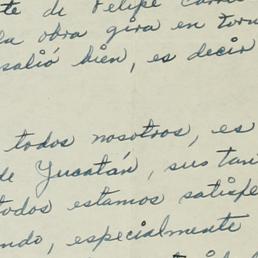 te de Felipe Carri
la obra gira en torn
salió bien, es decir
todos nosotros, es
de Yucatán, sus
todos estamos satisfe
ndo, especialmente